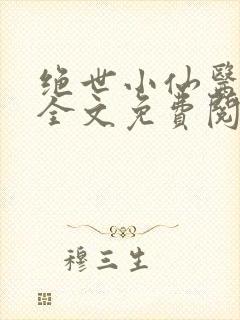 绝世小仙醫
全文免費閱
穆三生